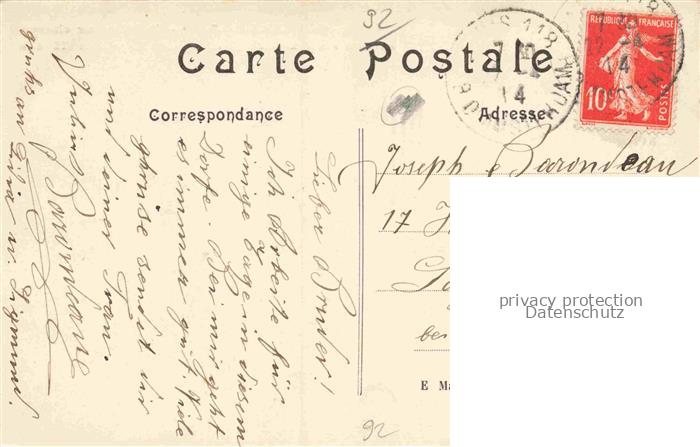 92
Carte Postale
Correspondance
Adresse
RÉPUBLIQUE FRANÇAISE
10
POSTES
118
14
Lieber Bruder!
Ich Arbeite für
einige Tage in diesem
Dorfe. Bei mir geht
es immer gut. Viele
grüsse sendet dir
und deiner Frau.
Julius
gruss an Livia u. Sigmund!
Joseph Barondeau
17
bei
E M
92
privacy protection
Datenschutz